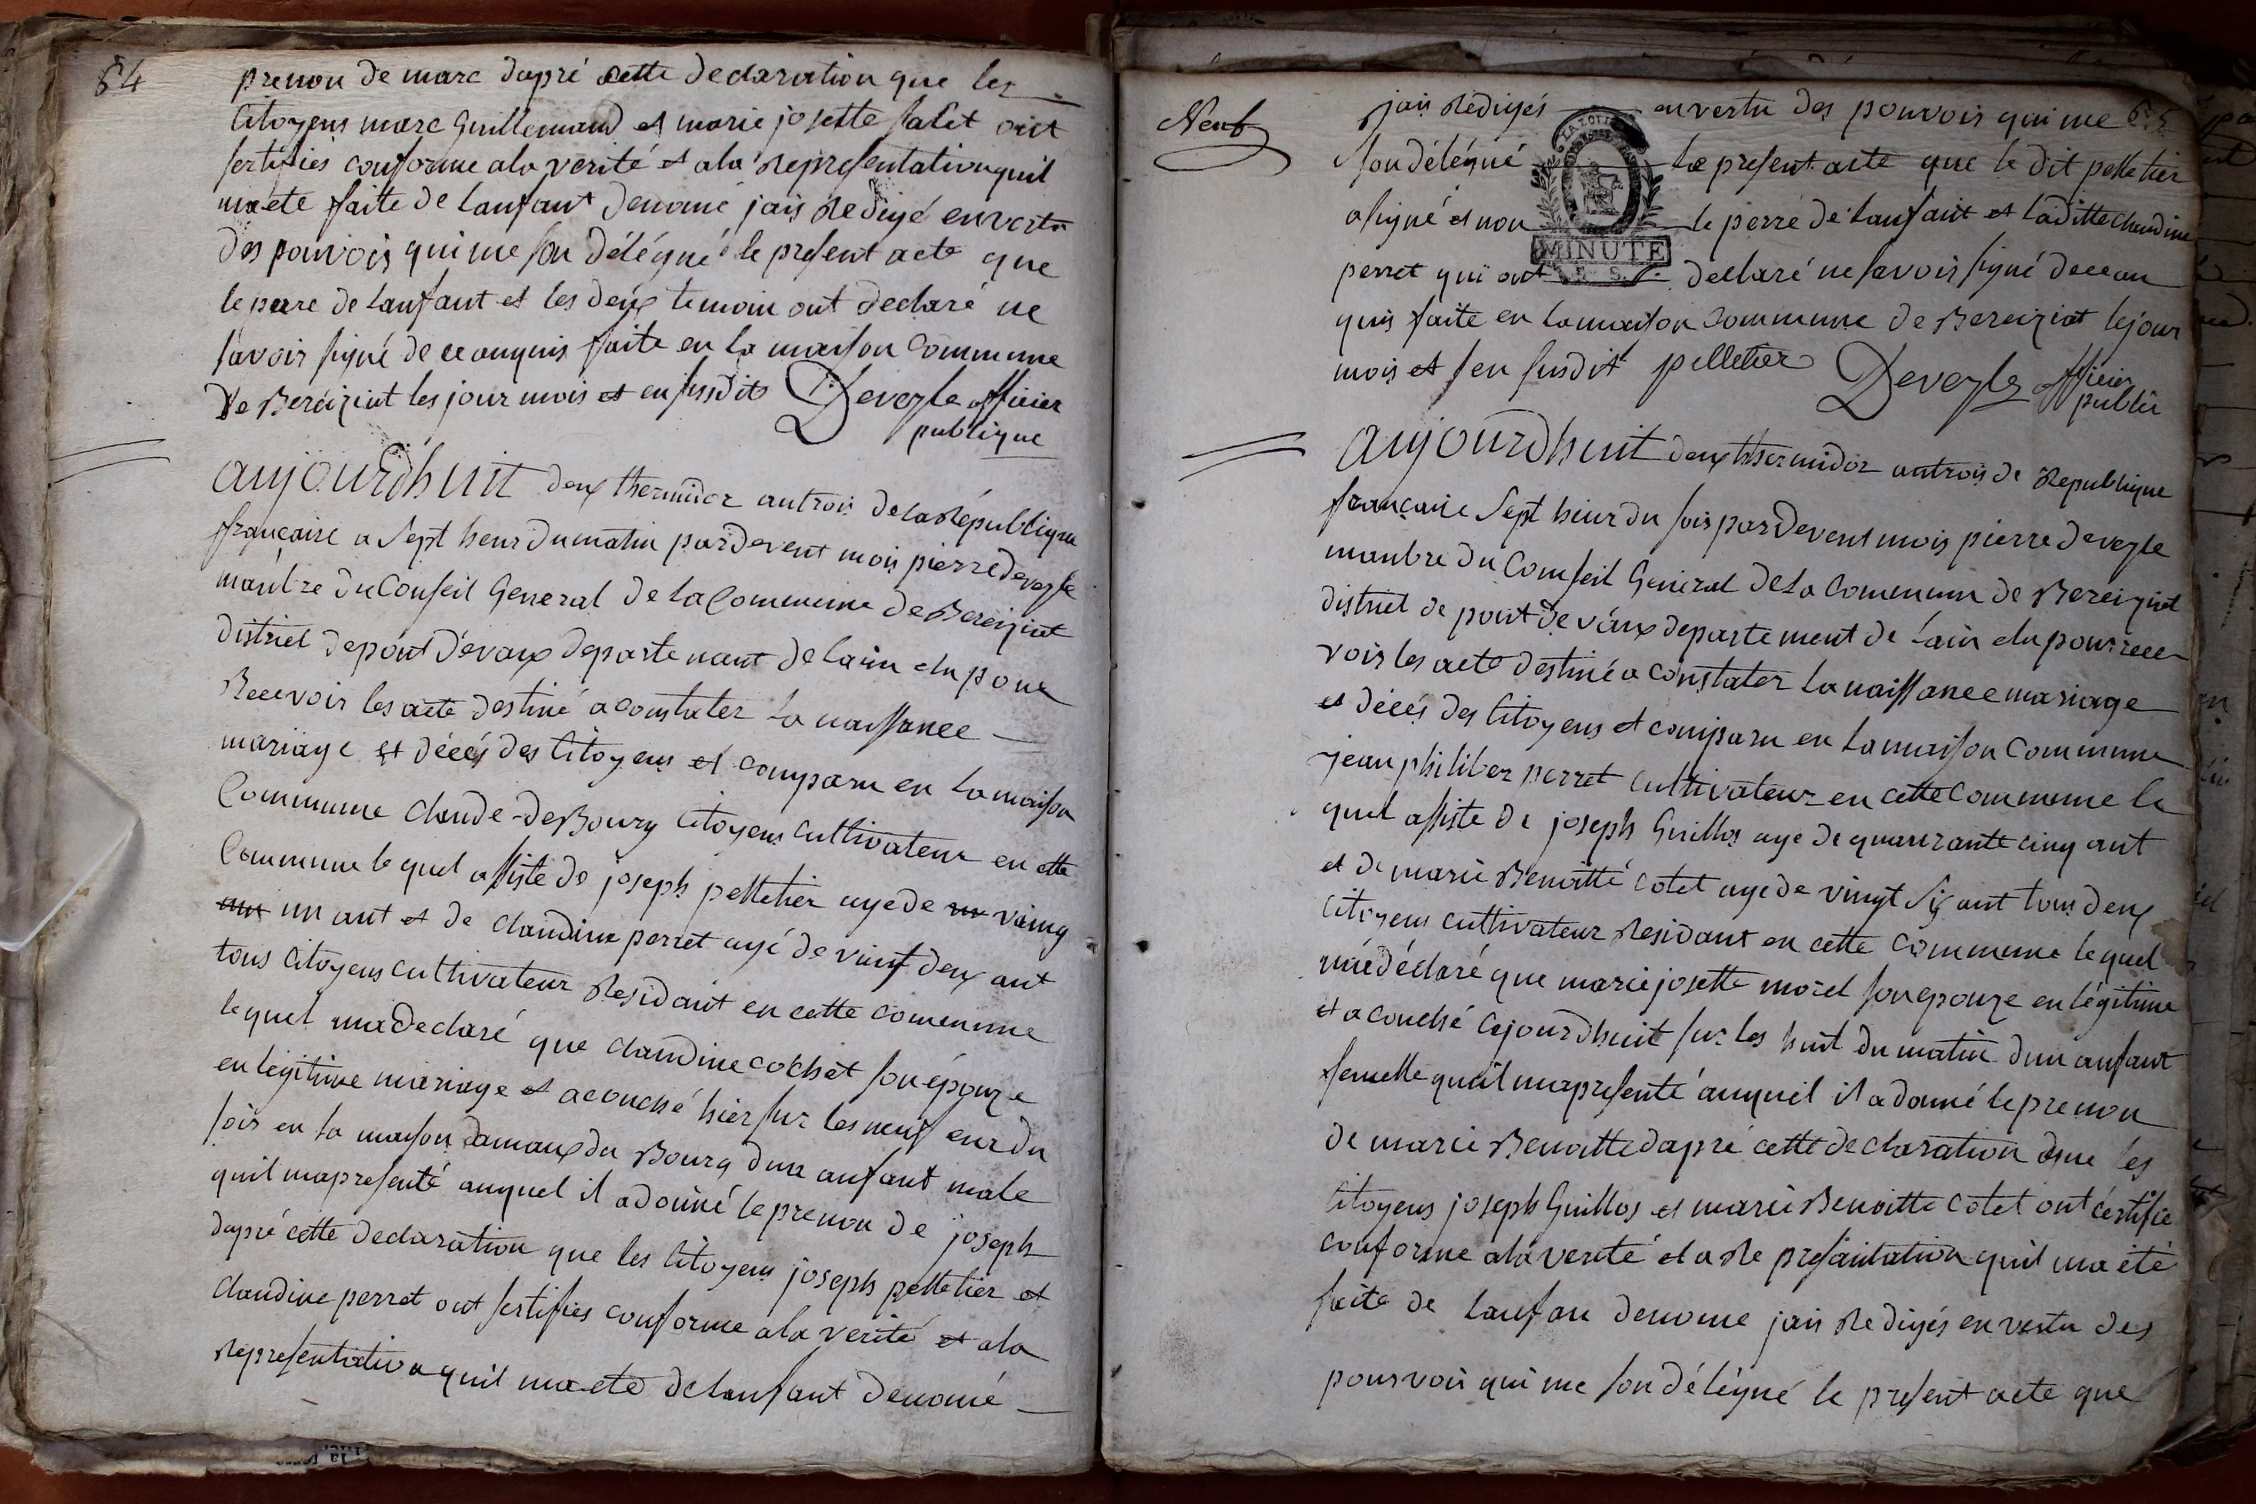 64
prenon de marc dapré cette declaration que les
Citoyens marc Guillemaud et marie josette salet ont
sertifies conforme ala verité et ala Representation quil
ma ete faite de lanfant denomé jais Redigé en vertu
des pouvois qui me son délégué le present acte que
le pere de lanfant et les deux temoin ont declaré ne
savoir signé de ce anquis faite en la maison Commune
De Bereiziat les jour mois et en susdit Deveyle officier
publique
aujourdhuit deux thermidor antrois de la République
française a Sept heur du matin pardevent mois pierre deveyle
manbre du Conseil General de la Commune de Bereiziat
district de pont devaux departement de lain elu pour
Recevoir les acte destiné a constater la naissance
mariage et décés des Citoyens et comparu en la maison
Commune claude deBourg Citoyens cultivateur en cette
Commune le quel assisté de joseph pelletier age de un vaing
un un ant et de claudine perret agé de vint deux ant
tous Citoyens cultivateur Residant en cette commune
le quel ma declaré que claudine cochet son épouze
en légitime mariage et acouché hier sur les neuf eur du
soir en la maison damaux du Bourg dun anfant male
quil ma presenté auquel il a donné le prenon de joseph
dapré cette declaration que les Citoyens joseph pelletier et
claudine perret ont sertifies conforme ala verité et ala
Representation quil ma ete de lanfant denomé
Neuf
65
jais Redigés en vertu des pouvoir qui me
son délégué le present acte que le dit pelletier
a signé et non le perre de lanfant et laditte claudine
perret qui ont declaré ne savoir signé de ce an
quis faite en la maison Commune de Bereiziat le jour
mois et sen susdit pelletier Deveyle officier
public
MINUTE
aujourdhuit deux thermidor antrois de Republique
française Sept heur du soir pardevent mois pierre deveyle
manbre du Comseil General de la Commune de Bereiziat
district de pont de vaux departement de lain elu pour rece
voir les acte destiné a constater la naissance mariage
et décés des Citoyens et comparu en la maison Commune
jean philiber perret cultivateur en cette commune le
quel assiste de joseph Guillos age de quarante cinq ant
et de marie Benoitte cotet age de vingt six ant tous deux
Citoyens cultivateur Residant en cette commune le quel
maé déclaré que marie josette morel son epouze en légitime
et a couché cejourdhuit sur les huit du matin dun anfant
femelle quil ma presenté auquel il a donné le prenon
de marie Benoitte dapré cette declaration que les
Citoyens joseph Guillos et marie Benoitte cotet ont certifie
conforme ala verité et a la Representation quil ma été
faite de lanfan denome jais Redigés en vertu des
pourvois qui me son délégué le present acte que